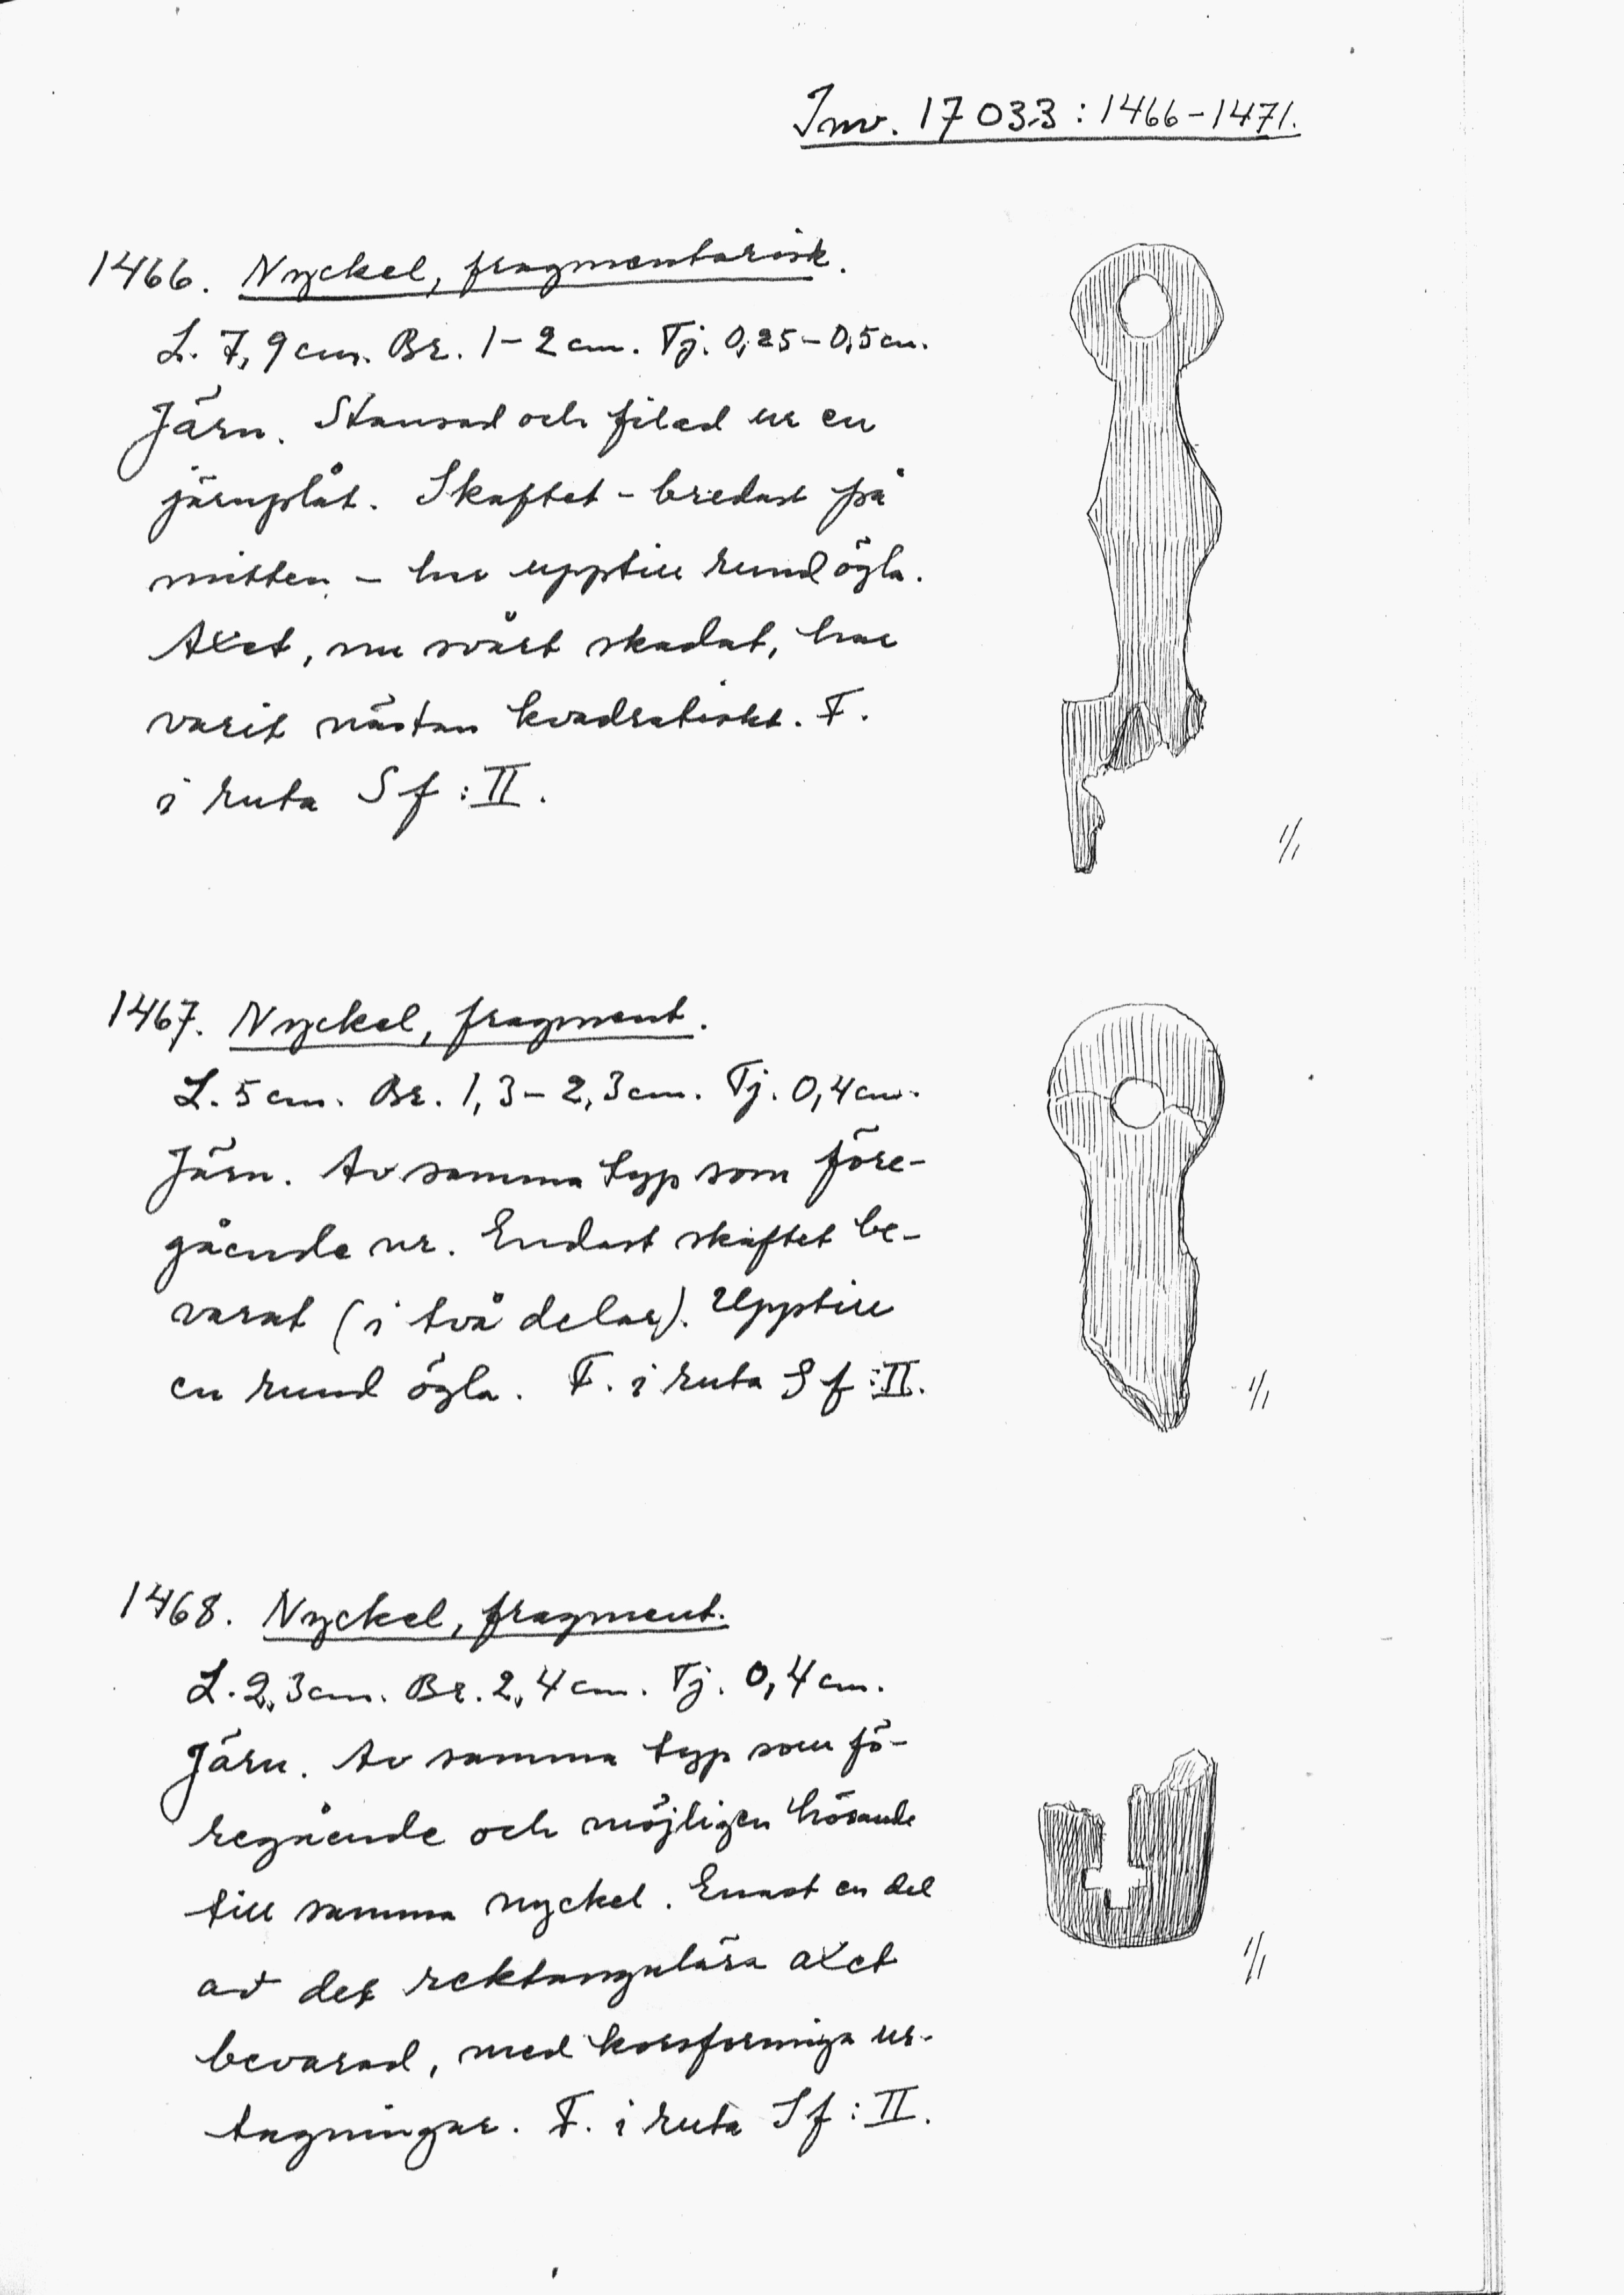 Inv. 17 033 : 1466-1471.
1466. Nyckel, fragmentarisk.
L. 7,9 cm. Br. 1-2 cm. Tj. 0,25-0,5 cm.
Järn. Stansad och filad ur en
järnplåt. Skaftet - bredast på
mitten - har upptill rund ögla.
Axet, nu svårt skadat, har
varit nästan kvadratiskt. F.
i ruta Sf : II.
1/1
1467. Nyckel, fragment.
L. 5 cm. Br. 1,3-2,3 cm. Tj. 0,4 cm.
Järn. Av samma typ som före-
gående nr. Endast skaftet be-
varat (i två delar). Upptill
en rund ögla. F. i ruta Sf : II.
1/1
1468. Nyckel, fragment.
L. 2,3 cm. Br. 2,4 cm. Tj. 0,4 cm.
Järn. Av samma typ som fö-
regående och möjligen hörande
till samma nyckel. Enast en del
av det rektangulära axet
bevarad, med korsformiga ur-
tagningar. F. i ruta Sf : II.
1/1